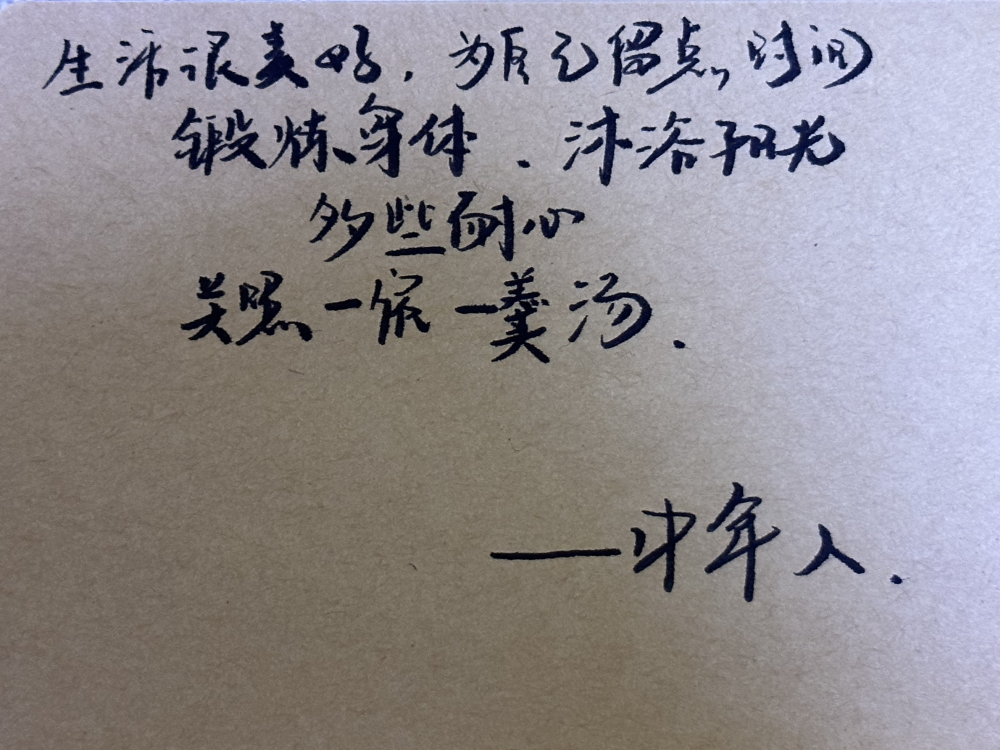 生活很美好，为自己留点时间
锻炼身体、沐浴阳光
多些耐心
关照一饭一羹汤.
——中年人.